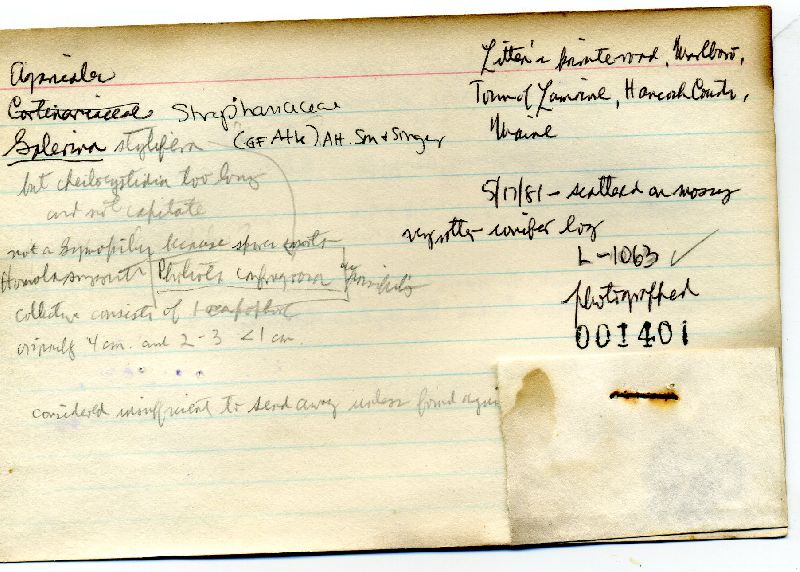 Agaricales
Cortinariaceae Strophariaceae
Galerina stylifera (GF Atk) AH. Sm & Singer
but cheilocystidia too long
and not capitate
not a Gymnopilus because spores
Pholiota confragosa
collection consists of 1 carpophore
originally 4 cm. and 2-3 <1 cm.
considered insufficient to send away unless found again
Litten's private road, Marlboro,
Town of Lamoine, Hancock County,
Maine
5/17/81 - scattered on mossy
very rotten conifer log
L-1063 ✓
photographed
001401